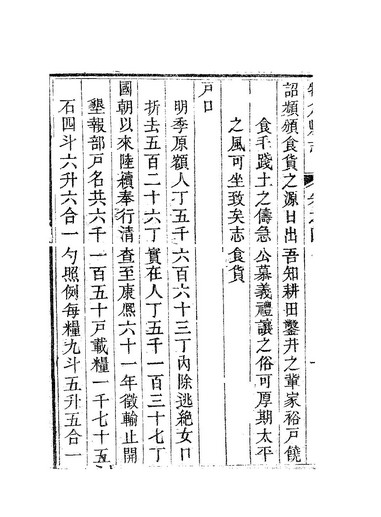 詔頻頒食貨之源日出吾知耕田鑿井之輩家裕戶饒
食毛踐土之儔急公慕義禮讓之俗可厚期太平
之風可坐致矣志食貨
戶口
明季原額人丁五千六百六十三丁內除逃絕女口
折去五百二十六丁實在人丁五千一百三十七丁
國朝以來陸續奉行清查至康熙六十一年徵輸止開
墾報部戶名共六千一百五十戶載糧一千七十五
石四斗六升六合一勺照例每糧九斗五升五合一